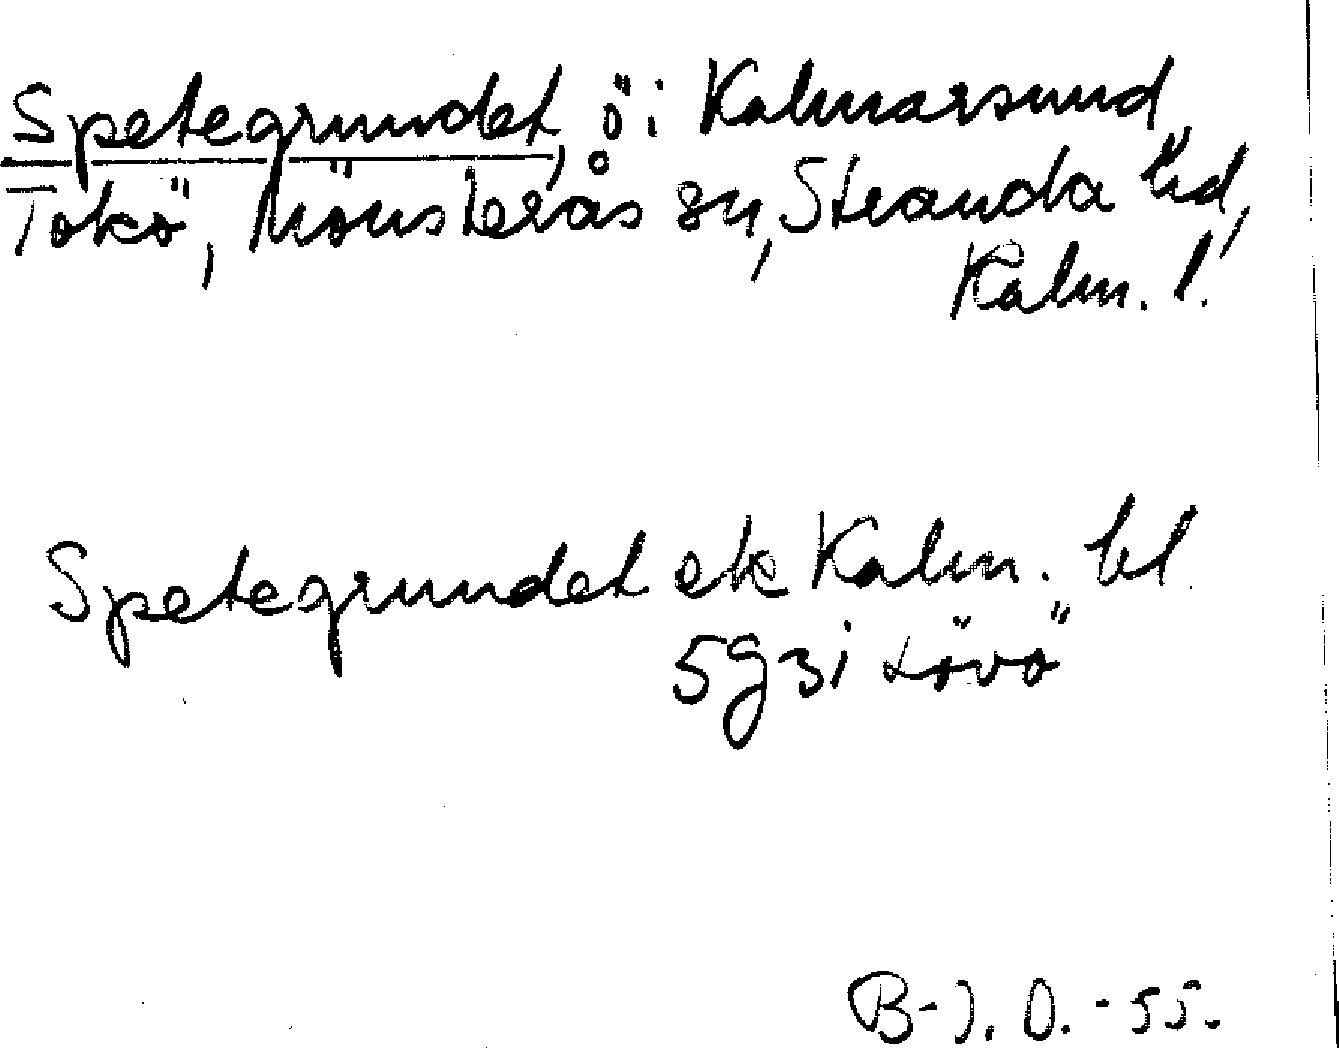 Spetegrundet, ö i Kalmarsund,
Tokö, Mönsterås sn, Stranda hd,
Kalm. l.
Spetegrundet ek Kalm. bl
5g3i Lövö
B-J. O. -55.